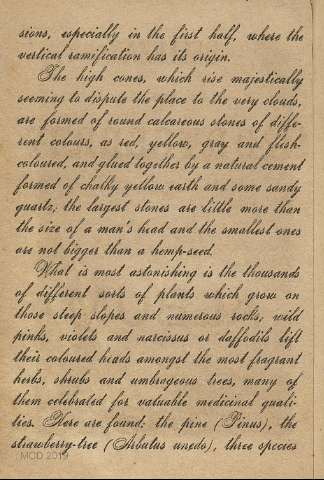 sions, especially in the first half, where the
vertical ramification has its origin.
The high cones, which rise majestically
seeming to dispute the place to the very clouds,
are formed of round calcareous stones of diffe-
rent colours, as red, yellow, gray and flesh-
coloured, and glued together by a natural cement
formed of chalky yellow earth and some sandy
quartz; the largest stones are little more than
the size of a man's head and the smallest ones
are not bigger than a hemp-seed.
What is most astonishing is the thousands
of different sorts of plants which grow on
those steep slopes and numerous rocks, wild
pinks, violets and narcissus or daffodils lift
their coloured heads amongst the most fragrant
herbs, shrubs and umbrageous trees, many of
them celebrated for valuable medicinal quali-
ties. Here are found: the pine (Pinus), the
strawberry-tree (Arbutus unedo), three species
MCD 2019